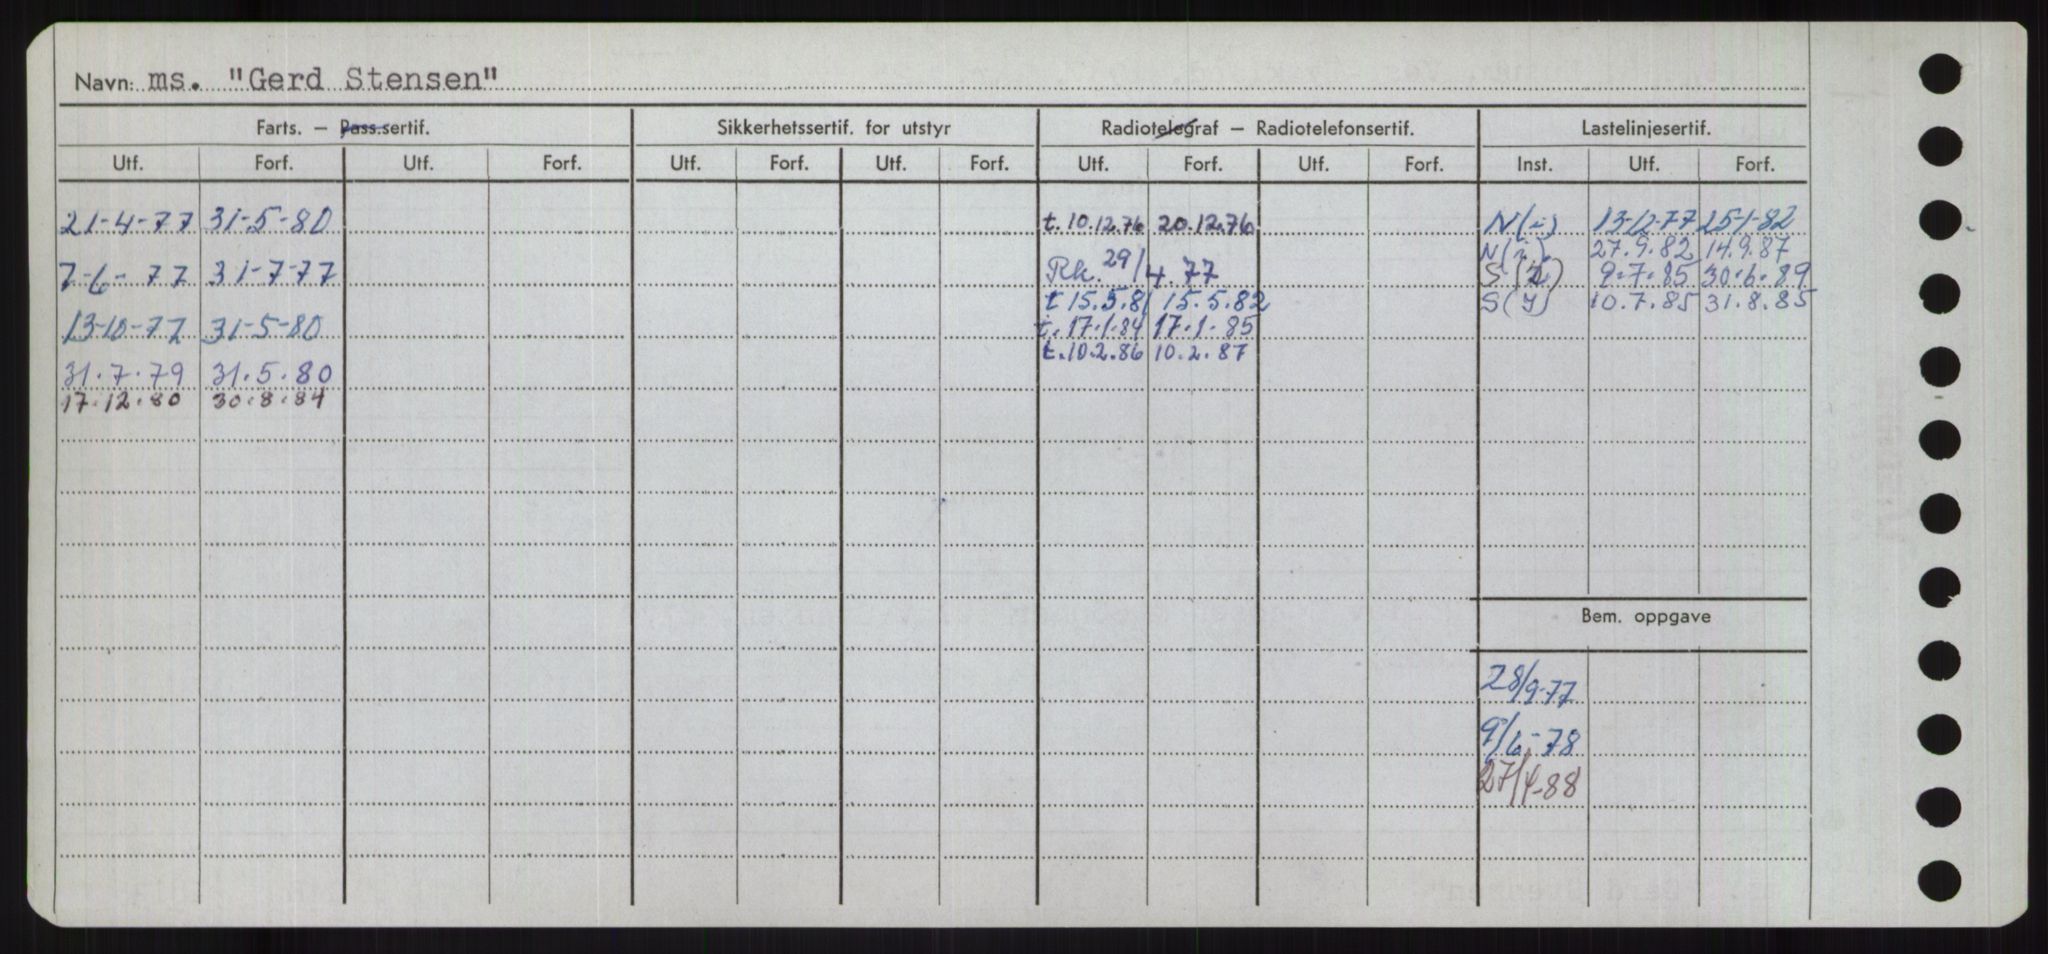 Navn: ms. "Gerd Stensen"
Farts. – Pass.sertif. Sikkerhetssertif. for utstyr Radiotelegraf – Radiotelefonsertif. Lastelinjesertif.
Utf. Forf. Utf. Forf. Utf. Forf. Utf. Forf. Utf. Forf. Utf. Forf. Inst. Utf. Forf.
21-4-77 31-5-80 t. 10.12.76 20.12.76 N(i) 13-12-77 25-1-82
N(i) 27.9.82 14.9.87
7-6-77 31-7-77 Rk. 29/4.77 S( ) 9.7.85 30.6.89
t 15.5.81 15.5.82 S(y) 10.7.85 31.8.85
13-10-77 31-5-80 t. 17.1.84 17.1.85
t. 10.2.86 10.2.87
31.7.79 31.5.80
17.12.80 30.8.84
Bem. oppgave
28/9-77
9/6-78
27/4-88